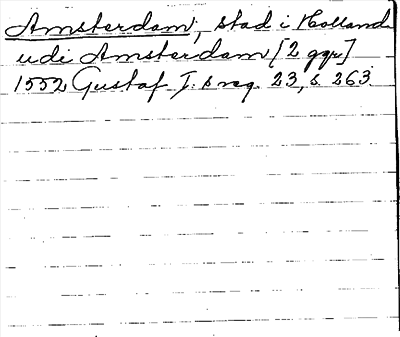 Amsterdam, stad i Holland
udi Amsterdam [2 ggr]
1552 Gustaf I:s reg. 23, s. 263.